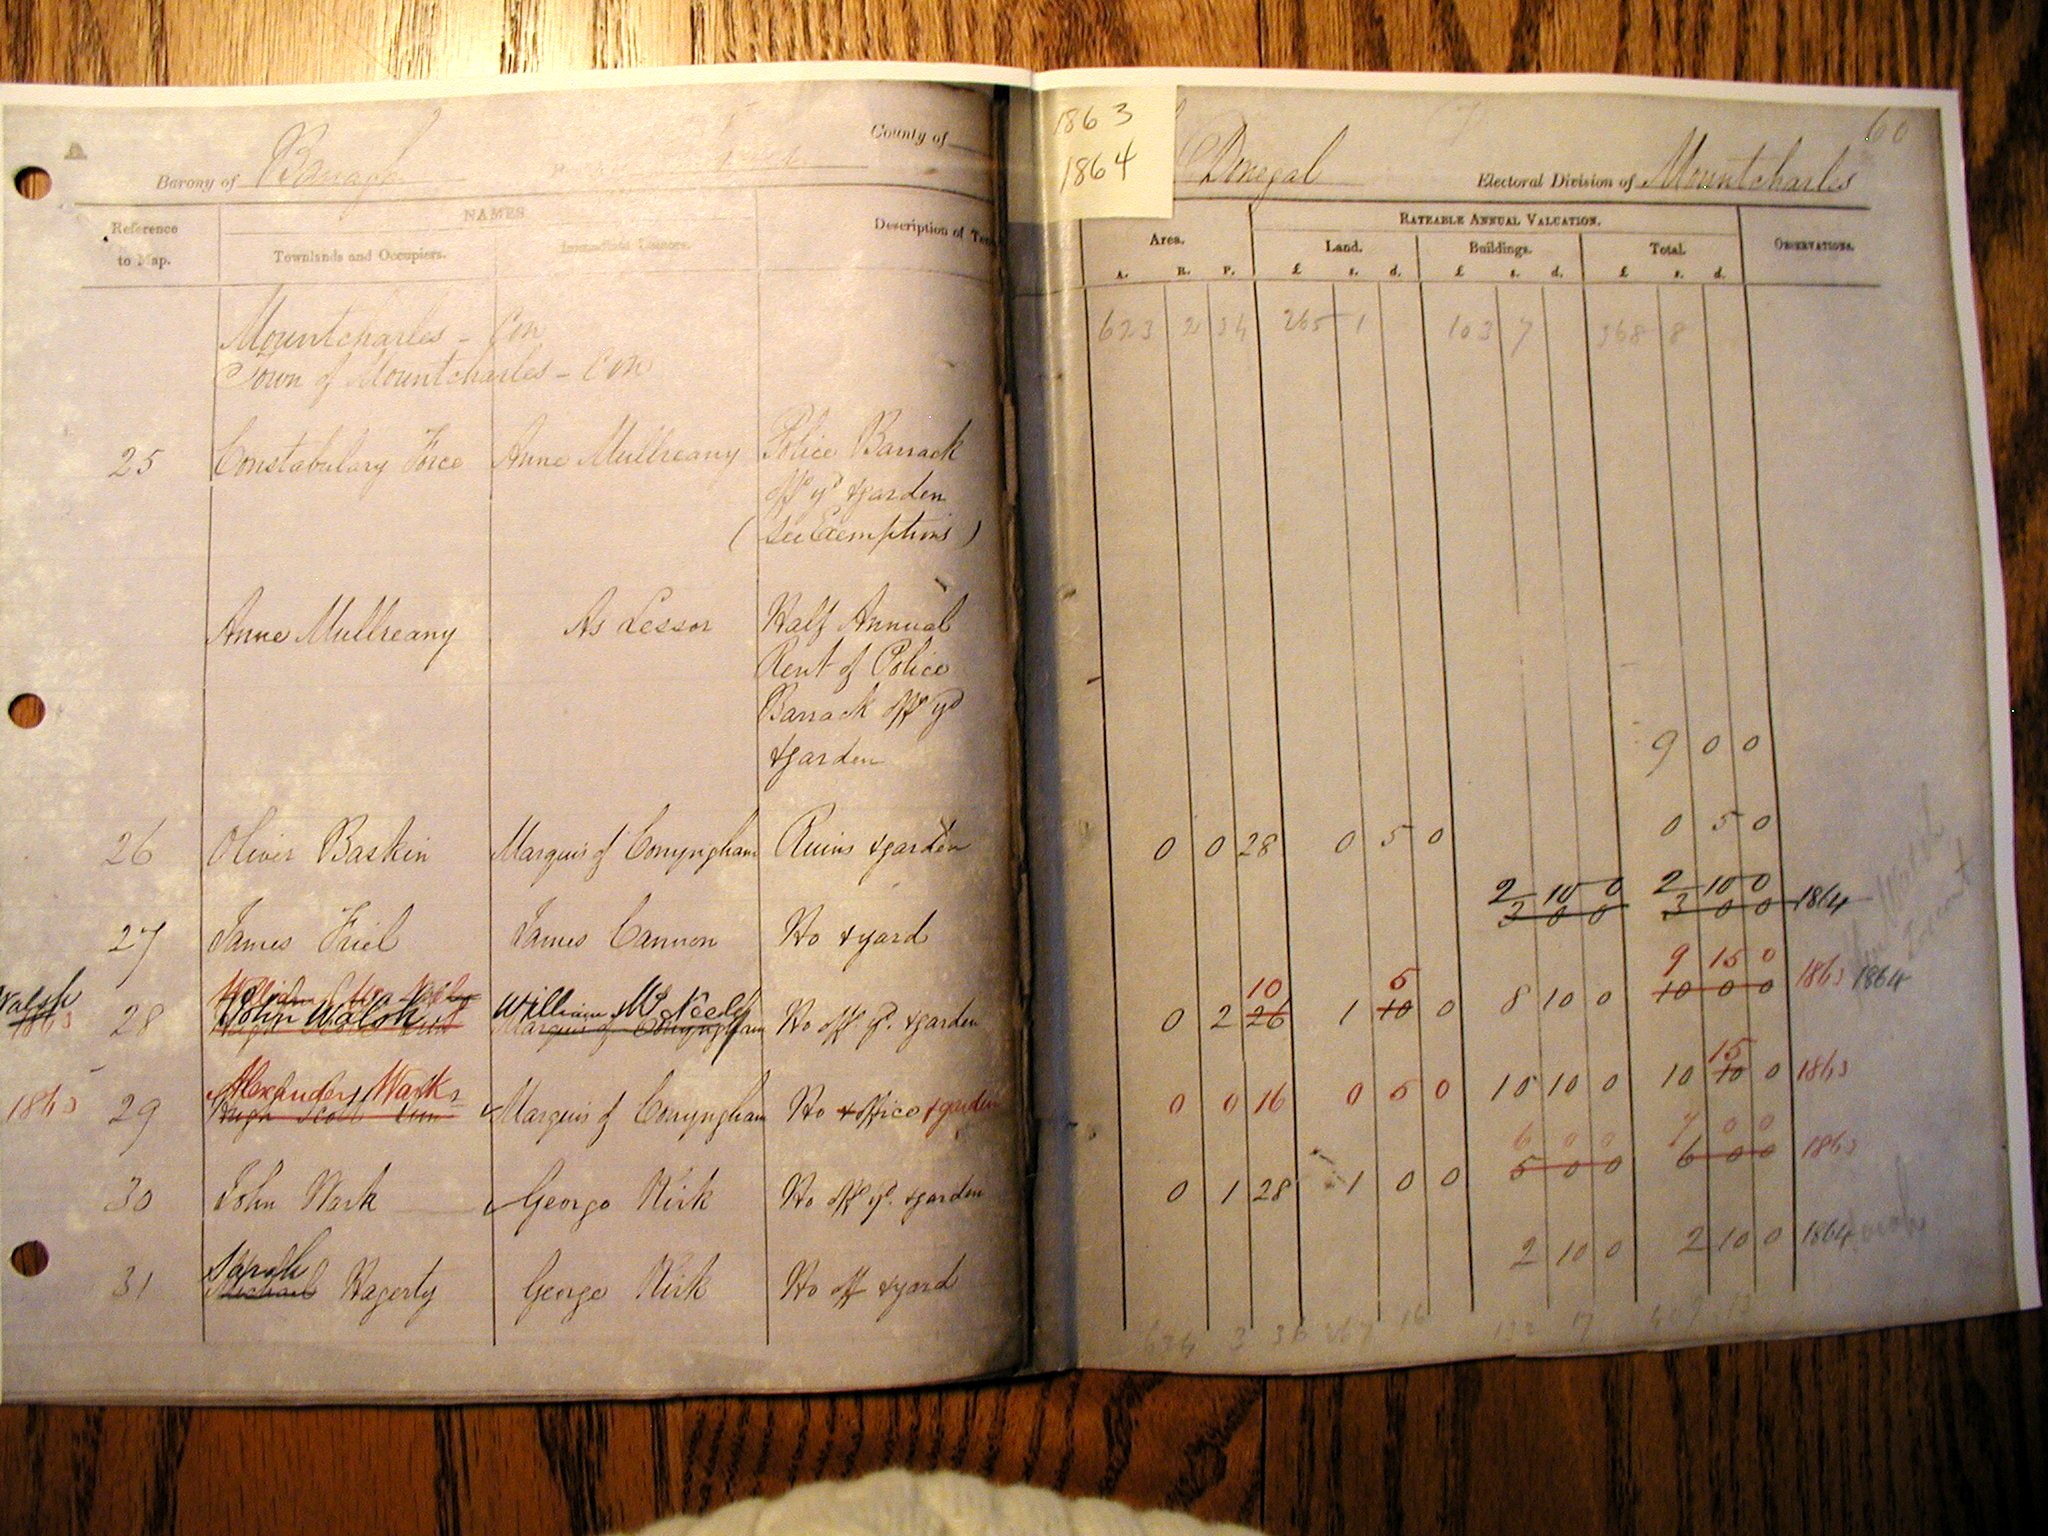 1863
1864
60
County of
Barony of Banagh
Donegal
Electoral Division of Mountcharles
Reference to Map.
NAMES
Townlands and Occupiers.
Immediate Lessors.
Description of Ten
Area.
A. R. P.
RATEABLE ANNUAL VALUATION.
Land.
£ s. d.
Buildings.
£ s. d.
Total.
£ s. d.
OBSERVATIONS.
Mountcharles - Con 623 2 34 265 1 103 7 368 8
Town of Mountcharles - Con
25 Constabulary Force Anne Mullreany Police Barrack
offs yd & garden
(See Exemptions)
Anne Mullreany As Lessor Half Annual
Rent of Police
Barrack offs yd
& garden 9 0 0
26 Oliver Baskin Marquis of Conyngham Ruins & garden 0 0 28 0 5 0 0 5 0
2 10 0 2 10 0
27 James Friel James Cannon Ho & yard 3 0 0 3 0 0 1864
Walsh William 10 5 9 15 0 1863 1864
1863 28 John Walsh William McNeely Ho offs yd. & garden 0 2 26 1 10 0 8 10 0 10 0 0
Marquis of Conyngham
Alexander Wark 15
1863 29 Hugh Scott Marquis of Conyngham Ho & office & garden 0 0 16 0 5 0 10 10 0 10 10 0 1863
6 0 0 7 0 0
30 John Wark George Kirk Ho offs yd. & garden 0 1 28 1 0 0 5 0 0 6 0 0 1863
Sarah
31 Michael Hagerty George Kirk Ho off & yard 2 10 0 2 10 0 1864 Sarah
634 3 36 267 16